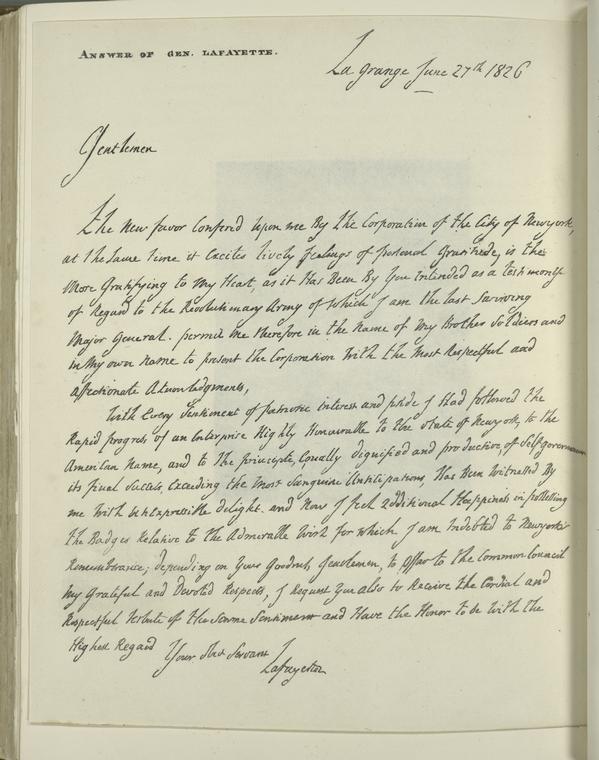 ANSWER OF GEN. LAFAYETTE.
La grange June 27th 1826
Gentlemen
The New favor Confered Upon me By the Corporation of the City of Newyork,
at the Same time it Excites lively feelings of personal Gratitude, is the
More Gratifying to My Heart, as it Has Been By You intended as a testimony
of Regard to the Revolutionary Army of which I am the last Surviving
Major General. permit me therefore in the Name of My Brother Soldiers and
in My own Name to present the Corporation With the Most Respectful and
affectionate Aknowledgments,
With Every Sentiment of patriotic interest and pride I Had followed the
Rapid progress of an Enterprise Highly Honourable to the State of Newyork, to the
American Name, and to the principle, Equally dignified and productive, of Self government
its final Success, Exceeding the Most Sanguine Anticipations, Has Been Witnessed By
me With inexpressible delight. and Now I feel additional Happiness in possessing
the Badges Relative to the Admirable Work for which I am Indebted to Newyork's
Remembrance; depending on Your Goodness, Gentlemen, to Offer to the Common Council
My Grateful and Devoted Respects, I Request You also to Receive the Cordial and
Respectful tribute of the Same Sentiments and Have the Honor to be With the
Highest Regard
Your Obt Servant
Lafayette